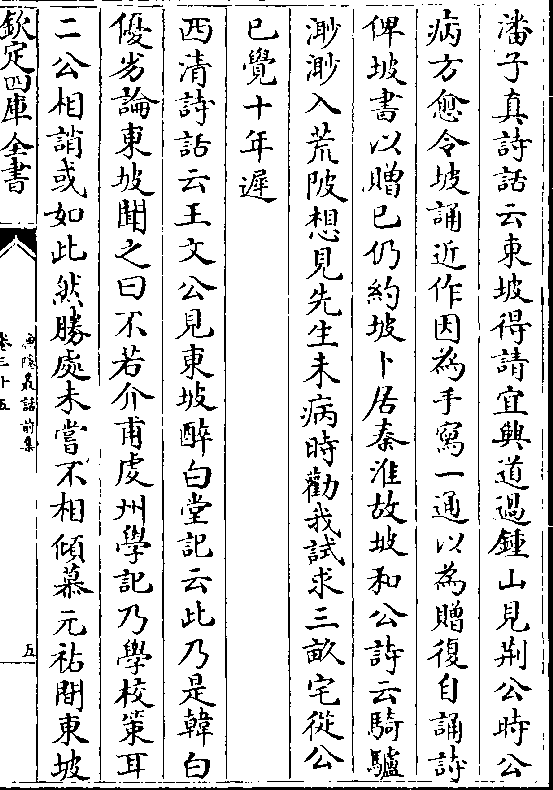 潘子真詩話云東坡得請宜興道過鍾山見荆公時公
病方愈令坡誦近作因為手寫一通以為贈復自誦詩
俾坡書以贈已仍約坡卜居秦淮故坡和公詩云騎驢
渺渺入荒陂想見先生未病時勸我試求三畝宅從公
已覺十年遲
西清詩話云王文公見東坡醉白堂記云此乃是韓白
優劣論東坡聞之曰不若介甫䖏州學記乃學校策耳
二公相誚或如此然勝處未嘗不相傾慕元祐間東坡
欽定四庫全書
漁隱叢話前集
卷三十五
五